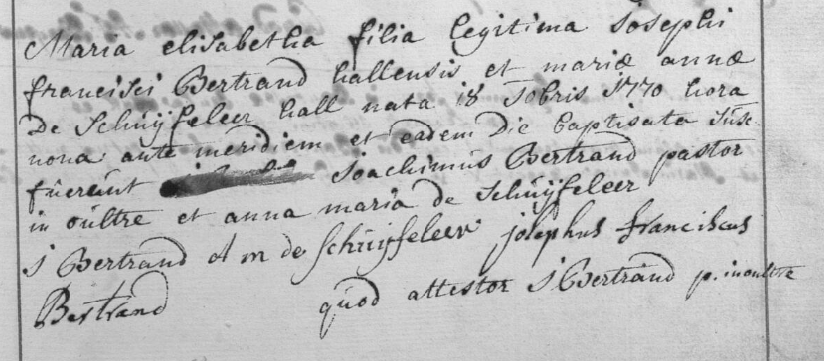 Maria elisabetha filia legitima Josephi
francisci Bertrand hallensis et mariæ annæ
De Schuÿfeleer hall nata 18 Jobris 1770 hora
nona ante meridiem et eadem Die baptisata Susc
fuerunt Joachimus Bertrand pastor
in oultre et anna maria de Schuÿfeleer
J Bertrand A m de Schuÿfeleer josephus franciscus
Bertrand quod attestor J Bertrand p. in oultre